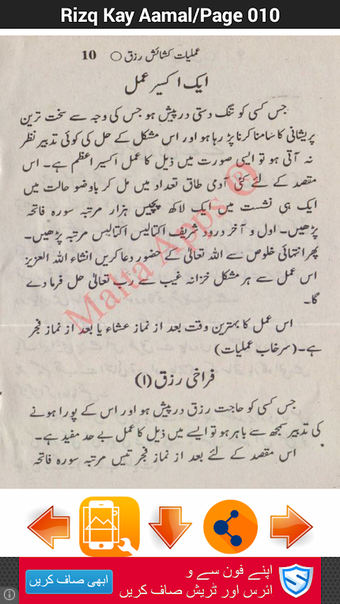 Rizq Kay Aamal/Page 010
عملیات کشائش رزق ○ 10
ایک اکسیر عمل
جس کسی کو تنگ دستی درپیش ہو جس کی وجہ سے سخت ترین
پریشانی کا سامنا کرنا پڑ رہا ہو اور اس مشکل کے حل کی کوئی تدبیر نظر
نہ آتی ہو تو ایسی صورت میں ذیل کا عمل اکسیر اعظم ہے۔ اس
مقصد کے لئے کئی آدمی طاق تعداد میں مل کر باوضو حالت میں
ایک ہی نشست میں ایک لاکھ پچیس ہزار مرتبہ سورہ فاتحہ
پڑھیں۔ اول و آخر درود شریف اکتالیس اکتالیس مرتبہ پڑھیں۔
پھر انتہائی خلوص سے اللہ تعالیٰ کے حضور دعا کریں انشاء اللہ العزیز
اس عمل سے ہر مشکل خزانہ غیب سے رب تعالیٰ حل فرما دے
گا۔
اس عمل کا بہترین وقت بعد از نماز عشاء یا بعد از نماز فجر
ہے۔ (سرخاب عملیات)
فراخی رزق (۱)
جس کسی کو حاجت رزق درپیش ہو اور اس کے پورا ہونے
کی تدبیر سمجھ سے باہر ہو تو ایسے میں ذیل کا عمل بے حد مفید ہے۔
اس مقصد کے لئے بعد از نماز فجر تیس مرتبہ سورہ فاتحہ
Malta Apps
اپنے فون سے و
ائرس اور ٹریش صاف کریں
ابھی صاف کریں